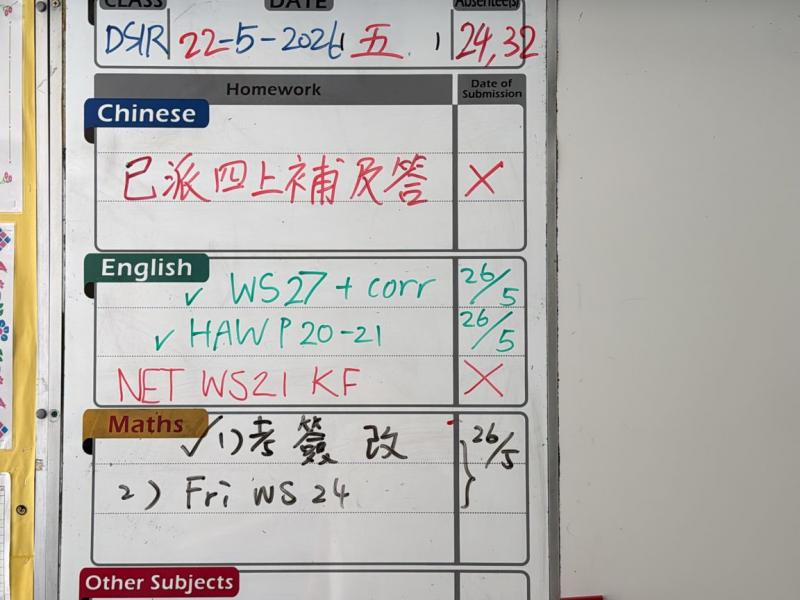 CLASS DATE Absentee(s)
22-5-2026 (五) 24,32
Homework Date of Submission
Chinese
已派四上補及答 ×
English
✓ WS27 + corr 26/5
✓ HAWP20-21 26/5
NET WS21 KF ×
Maths
✓1) 考簽改 26/5
2) Fri WS 24
Other Subjects